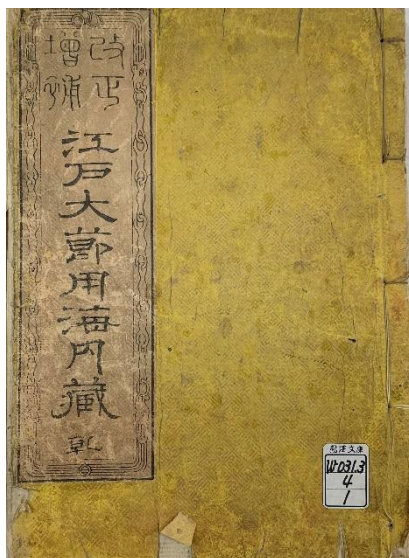 改正
增補
江戸大節用海内藏
乾
W-031.3
4
1